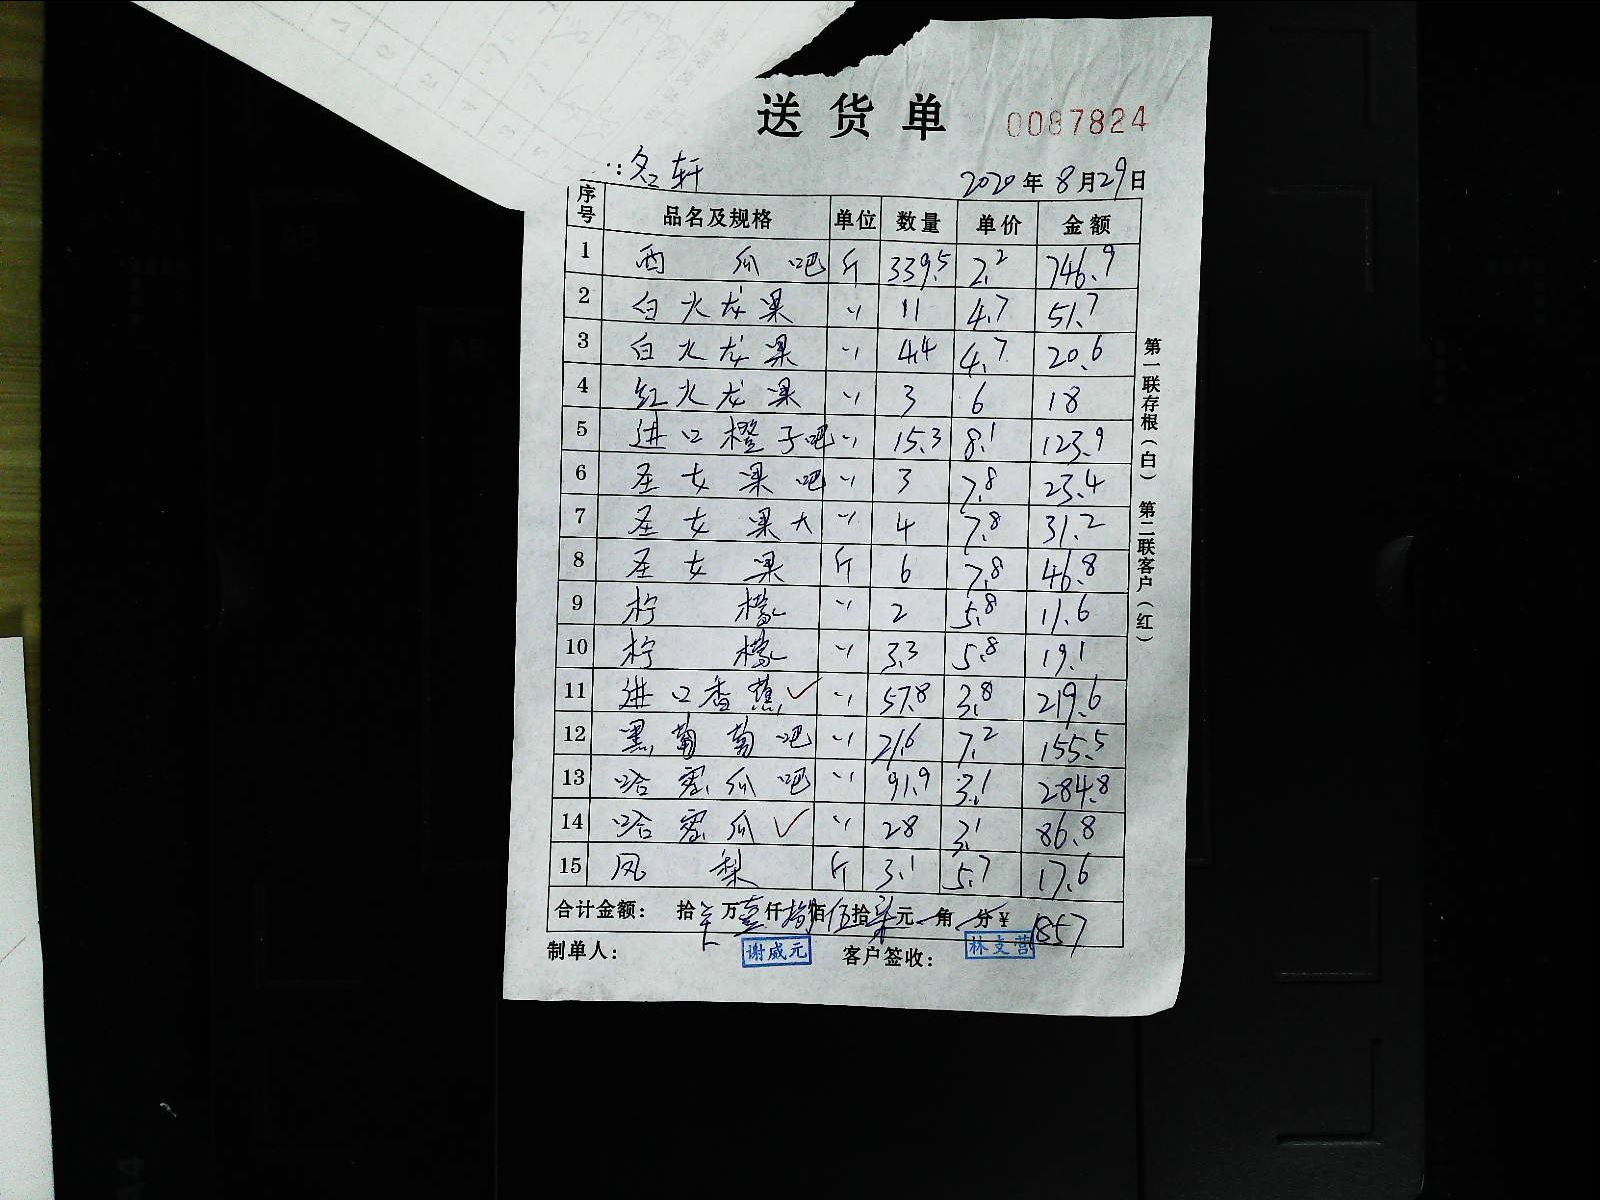 送货单 0087824
名轩 2020年8月29日
序号 品名及规格 单位 数量 单价 金额
1 西瓜吧 斤 339.5 2.2 746.9
2 白火龙果 〃 11 4.7 51.7
3 白火龙果 〃 4.4 4.7 20.6
4 红火龙果 〃 3 6 18
5 进口橙子吧 〃 15.3 8.1 123.9
6 圣女果吧 〃 3 7.8 23.4
7 圣女果大 〃 4 7.8 31.2
8 圣女果 斤 6 7.8 46.8
9 柠檬 〃 2 5.8 11.6
10 柠檬 〃 3.3 5.8 19.1
11 进口香蕉✓ 〃 57.8 3.8 219.6
12 黑葡萄吧 〃 21.6 7.2 155.5
13 哈蜜瓜吧 〃 91.9 3.1 284.8
14 哈蜜瓜✓ 〃 28 3.1 86.8
15 凤梨 斤 3.1 5.7 17.6
合计金额: 拾 万壹仟捌佰伍拾柒元 角 分¥ 1857
制单人: 谢威元 客户签收: 林支营
第一联存根(白) 第二联客户(红)